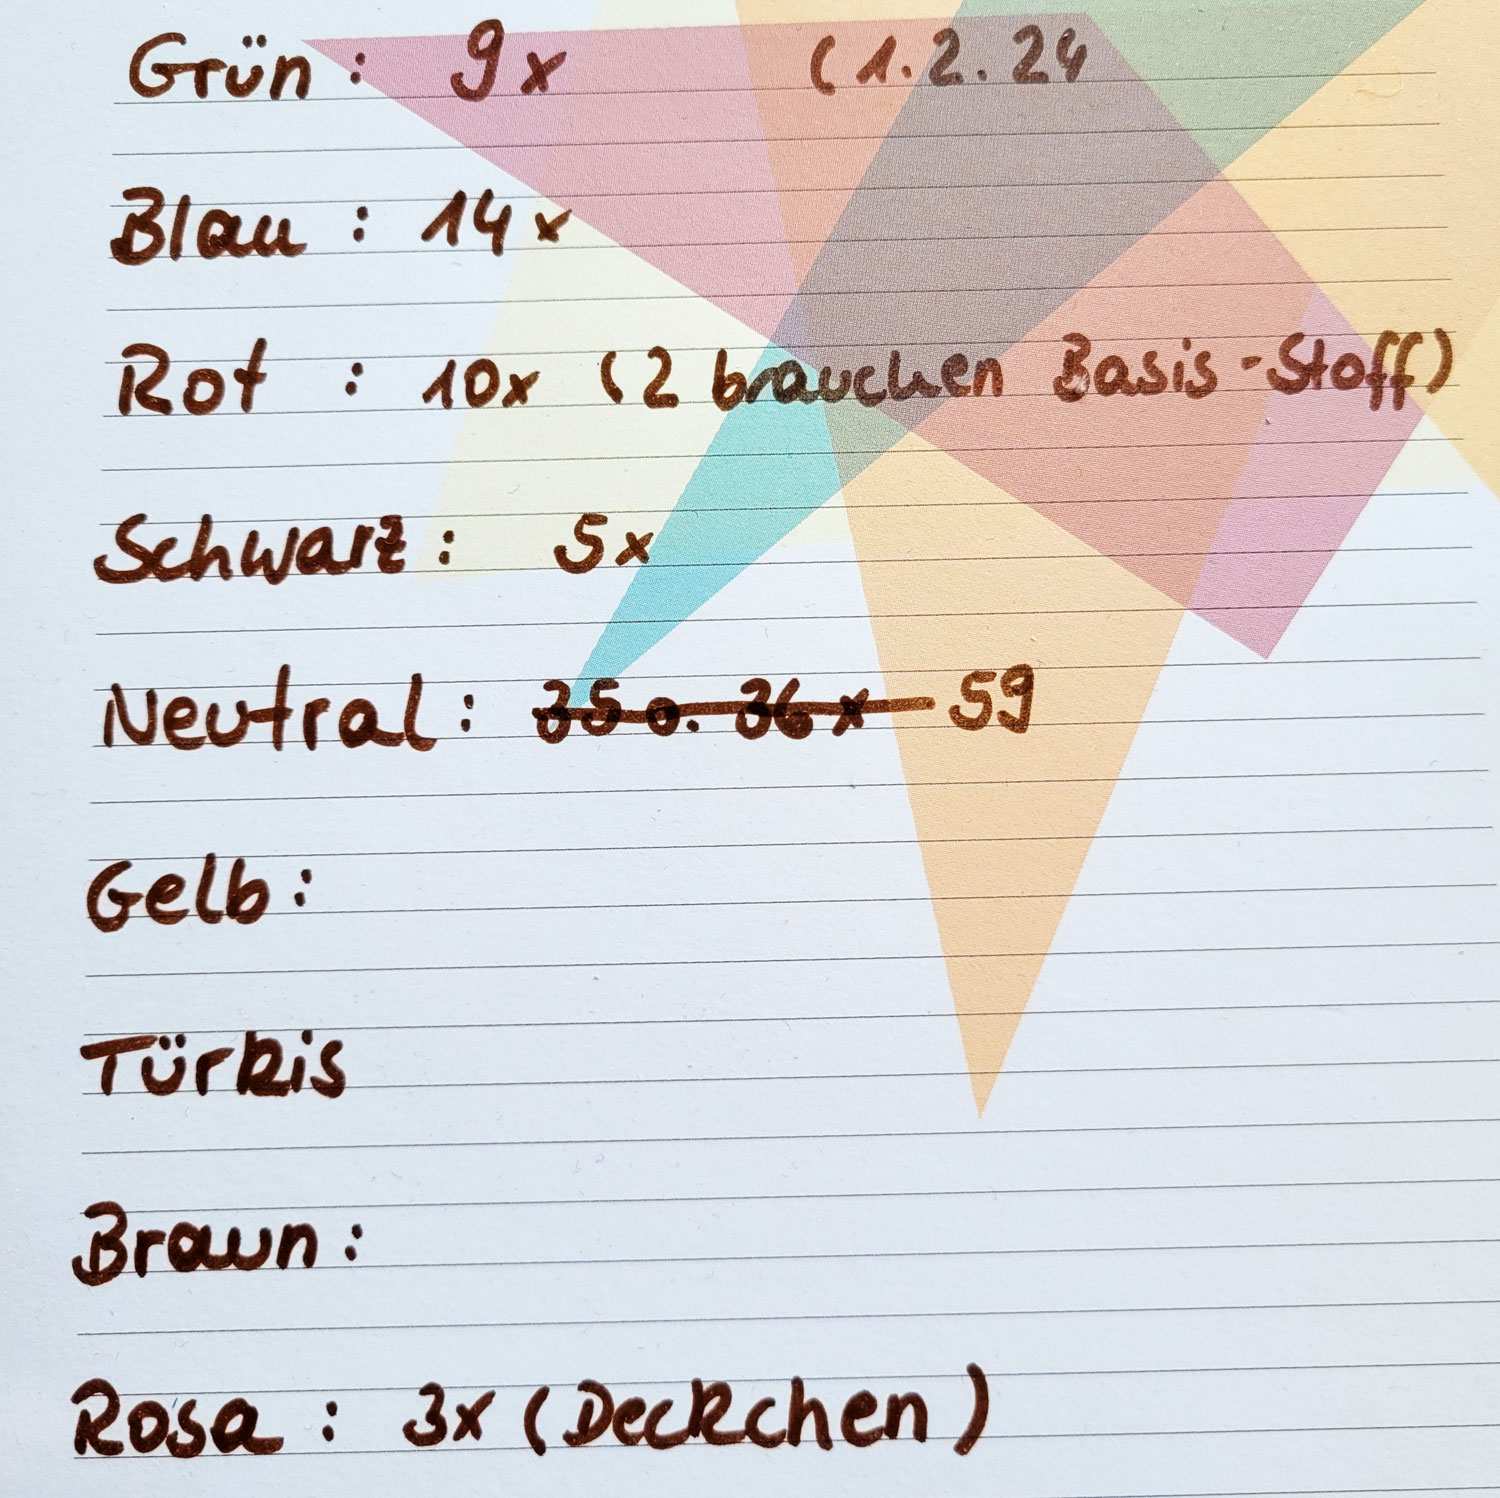 Grün: 9x (1.2.24
Blau: 14x
Rot: 10x (2 brauchen Basis-Stoff)
Schwarz: 5x
Neutral: 35 o. 36 x 59
Gelb:
Türkis
Braun:
Rosa: 3x (Deckchen)